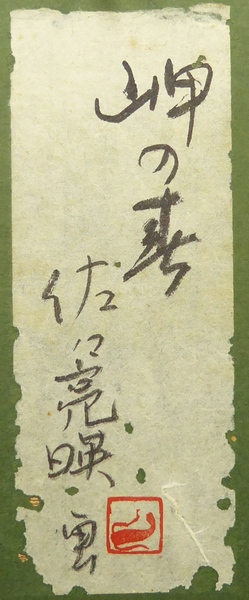 岬の春
佐々亮暎画